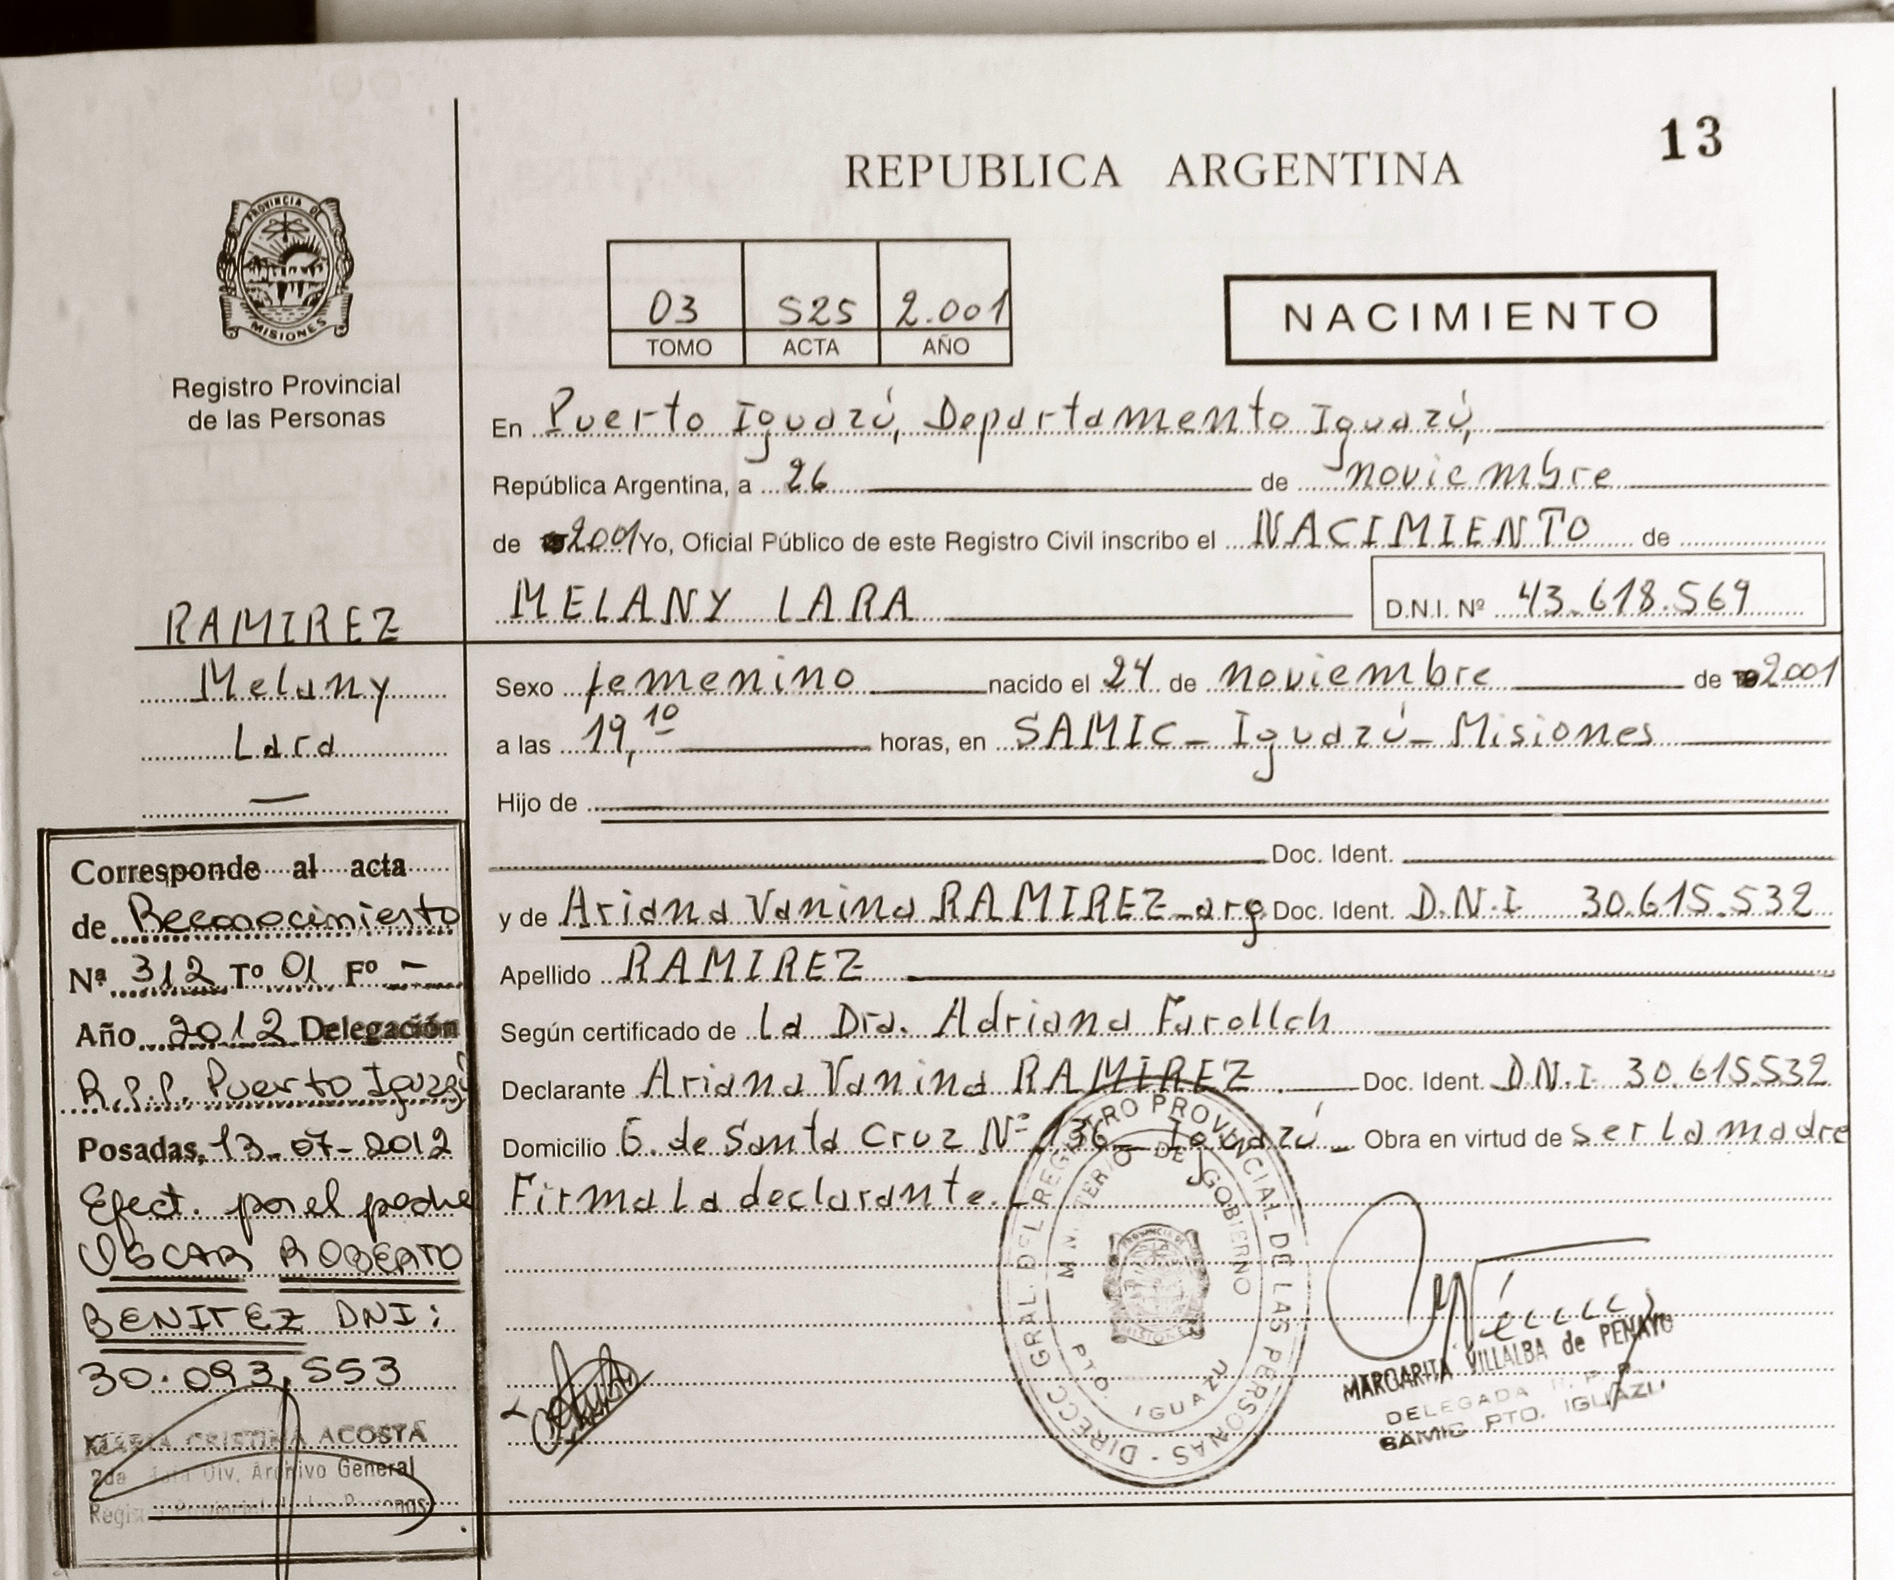 13
REPUBLICA ARGENTINA
PROVINCIA DE
MISIONES
Registro Provincial
de las Personas
03 525 2.001
TOMO ACTA AÑO
NACIMIENTO
En Puerto Iguazú, Departamento Iguazú,
República Argentina, a 26 de noviembre
de 2001 Yo, Oficial Público de este Registro Civil inscribo el NACIMIENTO de
MELANY LARA D.N.I. Nº 43.618.569
RAMIREZ
Melany
Lara
—
Sexo femenino nacido el 24 de noviembre de 2001
a las 19,10 horas, en SAMIC - Iguazú - Misiones
Hijo de
Doc. Ident.
y de Ariana Vanina RAMIREZ - arg Doc. Ident. D.N.I 30.615.532
Apellido RAMIREZ
Según certificado de La Dra. Adriana
Declarante Ariana Vanina RAMIREZ Doc. Ident. D.N.I 30.615532
Domicilio G. de Santa Cruz Nº 136 - Iguazú - Obra en virtud de ser La madre
Firma La declarante. -
Corresponde al acta
de Reconocimiento
Nª 312 Tº 01 Fº -
Año 2012 Delegación
R.P.P. Puerto Iguazú
Posadas, 13-07-2012
Efect. por el padre
OSCAR ROBERTO
BENITEZ DNI:
30.093.553
MARIA CRISTINA ACOSTA
2da Div. Archivo General
Registro Provincial de las Personas
DIRECC. GRAL. DEL REGISTRO PROVINCIAL DE LAS PERSONAS -
MINISTERIO DE GOBIERNO
PROVINCIA DE
MISIONES
PTO. IGUAZU
MARGARITA VILLALBA de PENAYO
DELEGADA R. P. P.
SAMIC PTO. IGUAZU